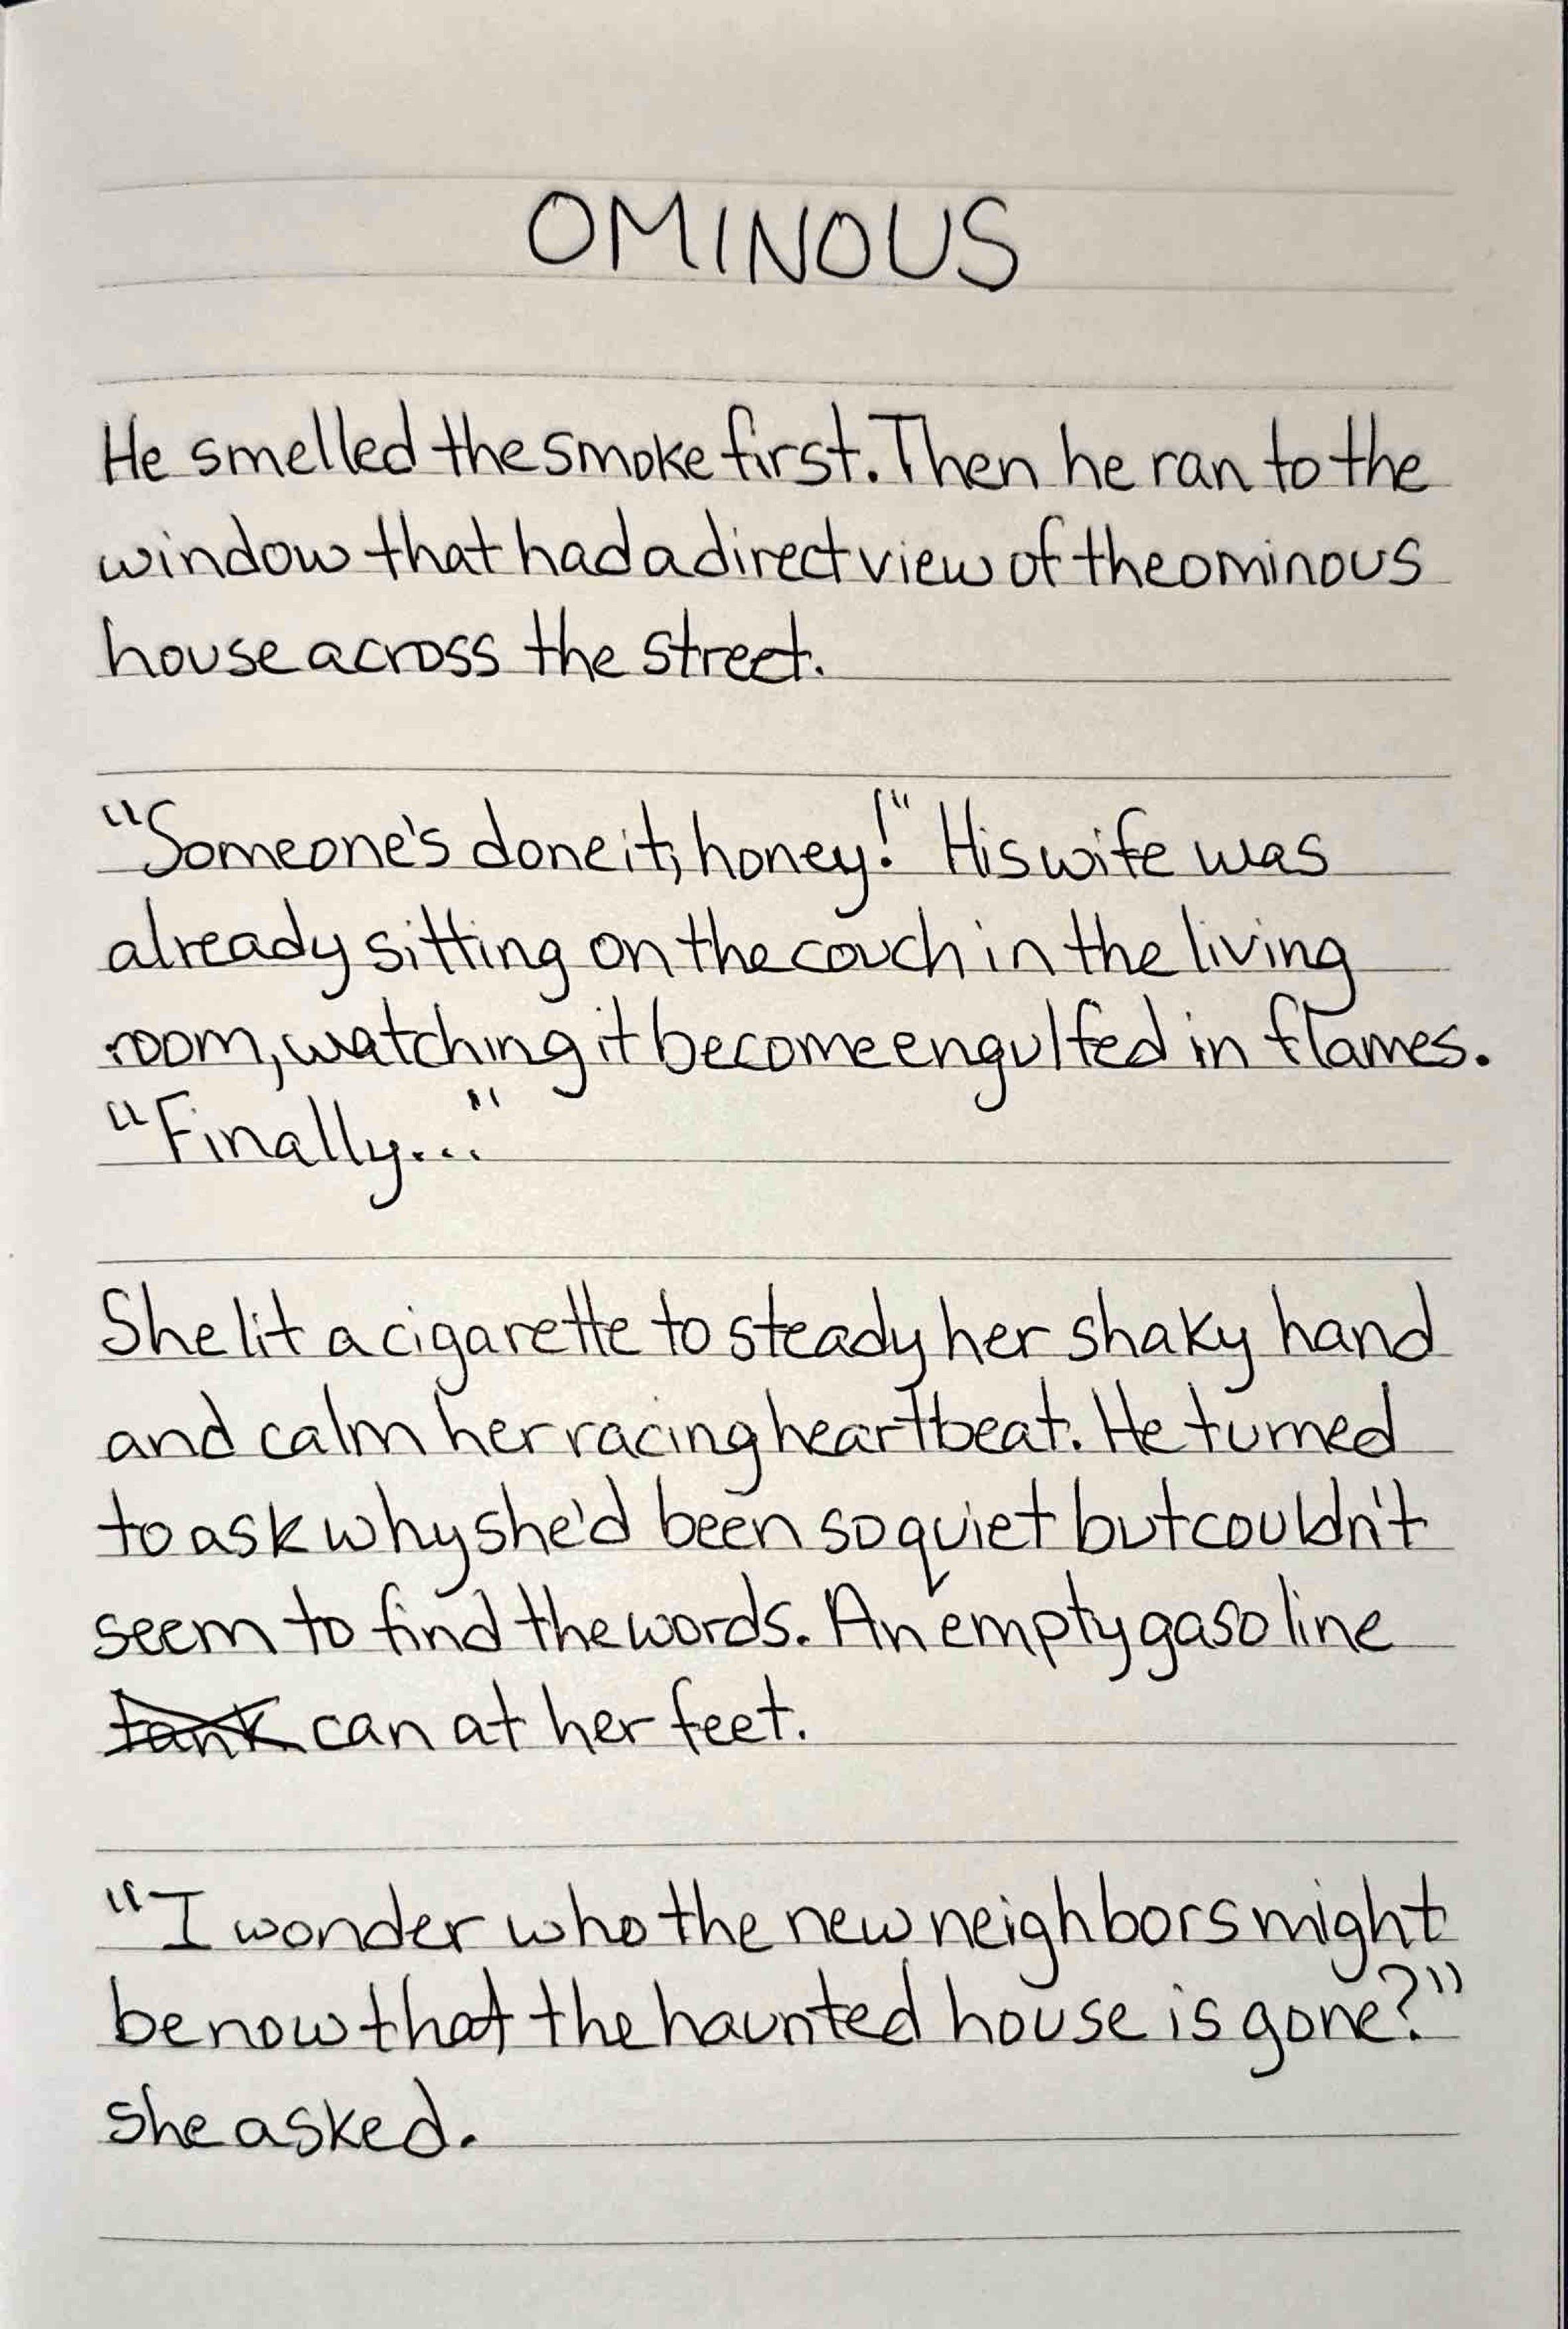 OMINOUS
He smelled the smoke first. Then he ran to the
window that had a direct view of the ominous
house across the street.
"Someone's done it, honey!" His wife was
already sitting on the couch in the living
room, watching it become engulfed in flames.
"Finally..."
She lit a cigarette to steady her shaky hand
and calm her racing heartbeat. He turned
to ask why she'd been so quiet but couldn't
seem to find the words. An empty gasoline
tank can at her feet.
"I wonder who the new neighbors might
be now that the haunted house is gone?"
she asked.